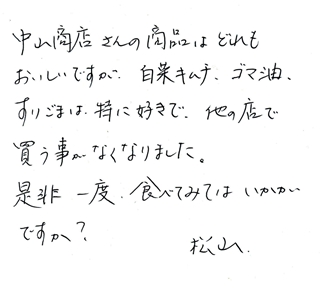 中山商店さんの商品はどれも
おいしいですが、白菜キムチ、ゴマ油、
すりごまは、特に好きで、他の店で
買う事がなくなりました。
是非一度、食べてみてはいかがい
ですか?
松山.